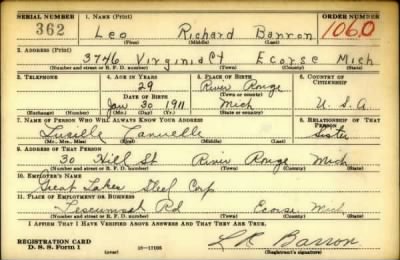 SERIAL NUMBER 1. NAME (Print) ORDER NUMBER
362 Leo Richard Barron 1060
(First) (Middle) (Last)
2. ADDRESS (Print)
3746 Virginia Ct Ecorse Mich
(Number and street or R. F. D. number) (Town) (County) (State)
3. TELEPHONE 4. AGE IN YEARS 5. PLACE OF BIRTH 6. COUNTRY OF CITIZENSHIP
29 River Rouge
DATE OF BIRTH (Town or county)
Jan 30 1911 Mich U. S. A.
(Exchange) (Number) (Mo.) (Day) (Yr.) (State or country)
7. NAME OF PERSON WHO WILL ALWAYS KNOW YOUR ADDRESS 8. RELATIONSHIP OF THAT PERSON
Lucille Sister
(Mr., Mrs., Miss) (First) (Middle) (Last)
9. ADDRESS OF THAT PERSON
30 Hill St River Rouge Mich
(Number and street or R. F. D. number) (Town) (County) (State)
10. EMPLOYER'S NAME
Great Lakes Steel Corp
11. PLACE OF EMPLOYMENT OR BUSINESS
Rd Ecorse Mich
(Number and street or R. F. D. number) (Town) (County) (State)
I AFFIRM THAT I HAVE VERIFIED ABOVE ANSWERS AND THAT THEY ARE TRUE.
REGISTRATION CARD
D. S. S. Form 1 (over) L R Barron
(Registrant's signature)